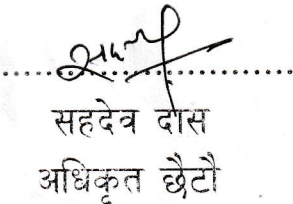 सहदेव दास
अधिकृत छैटौ